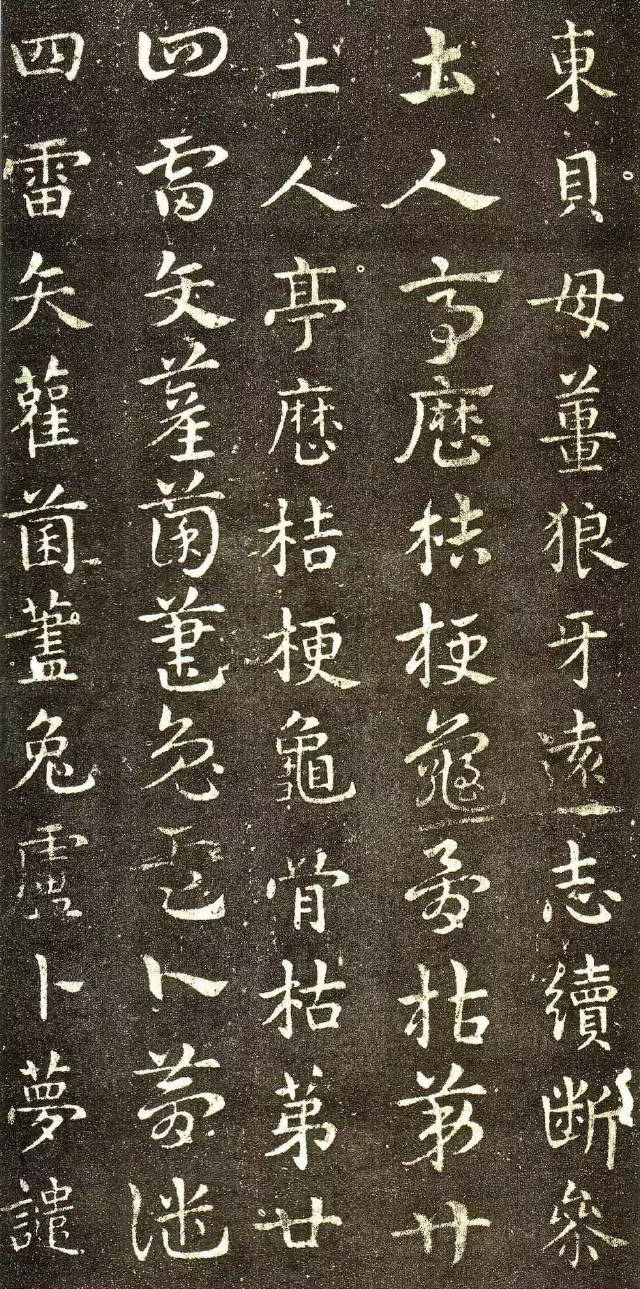 東貝母薑狼牙遠志續斷參
土人亭厯桔梗龜骨枯第廿
土人亭厯桔梗龜骨枯第廿
四雷矢雚菌藎兔卜夢譴
四雷矢雚菌藎兔卜夢譴